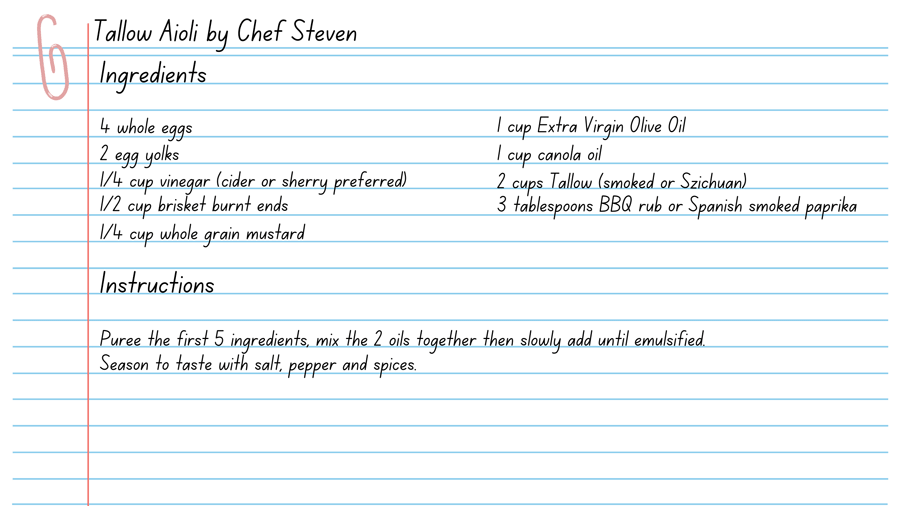 Tallow Aioli by Chef Steven
Ingredients
4 whole eggs
2 egg yolks
1/4 cup vinegar (cider or sherry preferred)
1/2 cup brisket burnt ends
1/4 cup whole grain mustard
1 cup Extra Virgin Olive Oil
1 cup canola oil
2 cups Tallow (smoked or Szichuan)
3 tablespoons BBQ rub or Spanish smoked paprika
Instructions
Puree the first 5 ingredients, mix the 2 oils together then slowly add until emulsified.
Season to taste with salt, pepper and spices.